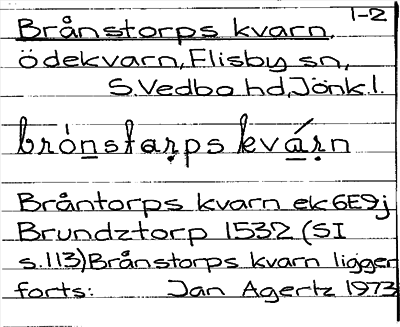 1-2
Brånstorps kvarn,
ödekvarn, Flisby sn,
S. Vedbo hd, Jönk. l.
brónstarps kvárn
Bråntorps kvarn ek 6E9j
Brundztorp 1532 (SI
s. 113) Brånstorps kvarn ligger
forts: Jan Agertz 1973